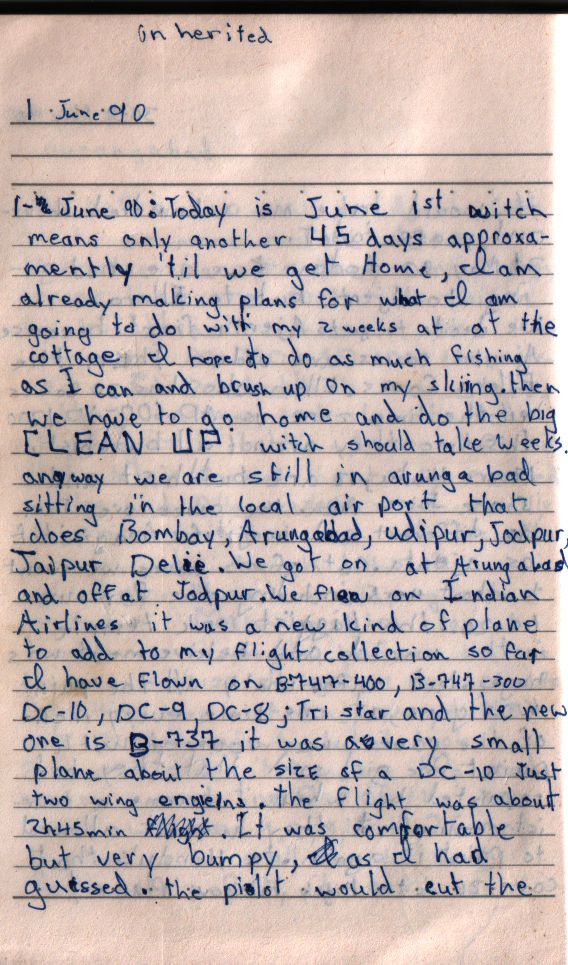 on herited
1 · June · 90
1- June 90: Today is June 1st witch
means only another 45 days approxa-
mently 'til we get Home, I am
already making plans for what I am
going to do with my 2 weeks at at the
cottage I hope to do as much fishing
as I can and brush up on my skiing. then
we have to go home and do the big
CLEAN UP witch should take weeks.
anyway we are still in arunga bad
sitting in the local air port that
does Bombay, Arungabad, udipur, Jodpur,
Jaipur Delii. We got on at Arungabad
and off at Jodpur. We flew on Indian
Airlines it was a new kind of plane
to add to my flight collection so far
I have flown on B-747-400, B-747-300
DC-10, DC-9, DC-8, Tri star and the new
one is B-737 it was a very small
plane about the size of a DC-10 Just
two wing engeins. the flight was about
2h45min. It was comfortable
but very bumpy, as I had
guessed. the pilot would cut the